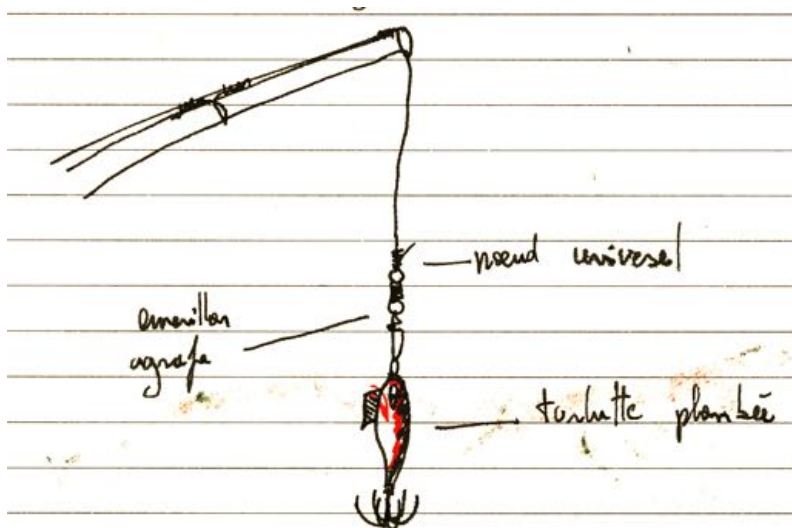 noeud universel
emerillon
agrafe
turlutte plombée